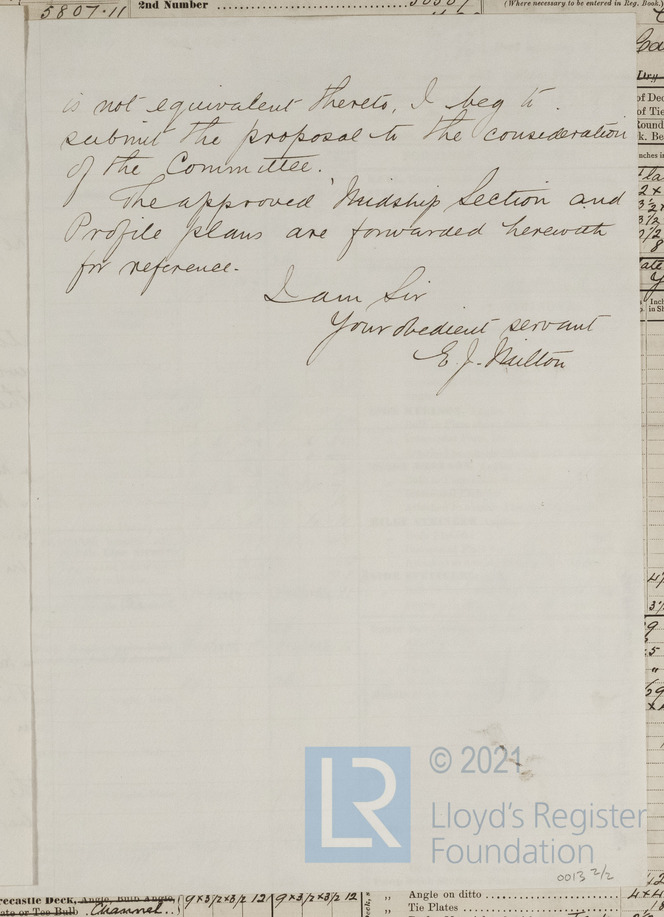 5807.11
2nd Number
(Where necessary to be entered in Reg. Book.)
is not equivalent thereto, I beg to
submit the proposal to the consideration
of the Committee.
The approved Midship Section and
Profile plans are forwarded herewith
for reference.
I am Sir
Your obedient servant
E. J. Milton
© 2021
LR
Lloyd's Register
Foundation
0013 2/2
recastle Deck, Angle, Bulb Angle,
ate or Tee Bulb Channel
9 x 3½ x 3½ 12 9 x 3½ x 3½ 12
„ Angle on ditto
„ Tie Plates